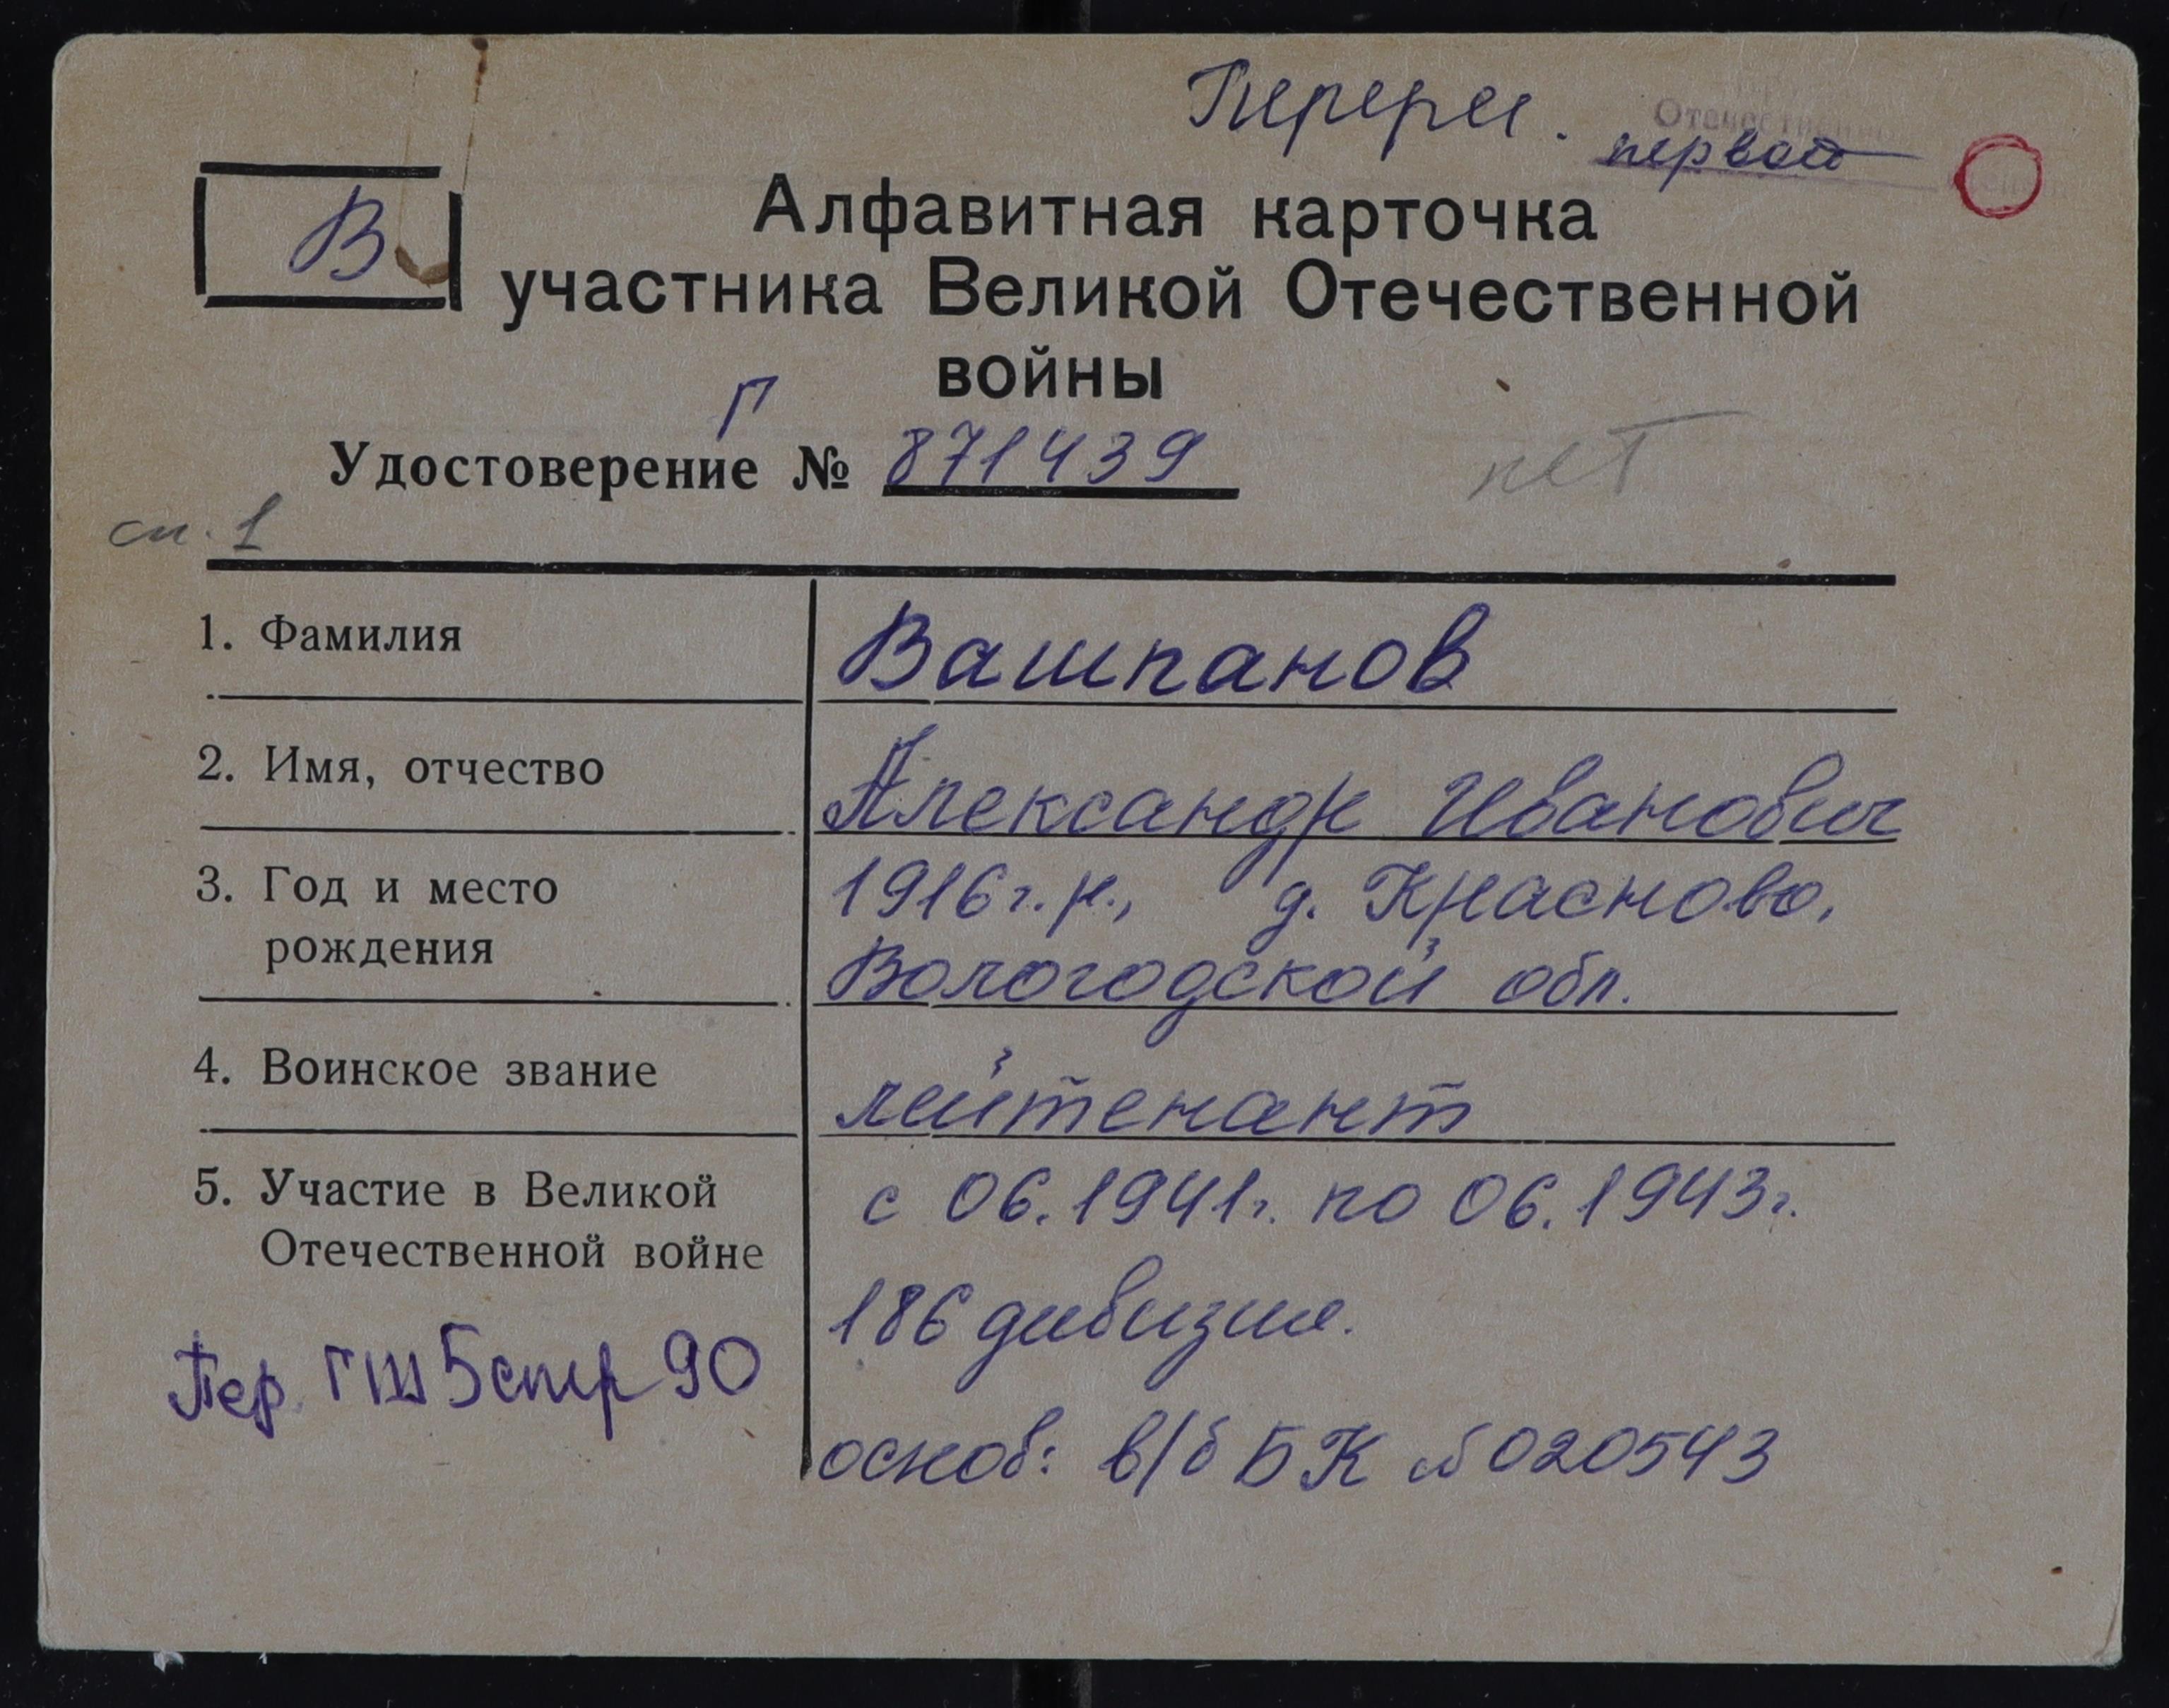 Перерег.
Отечественной
первой
В
Алфавитная карточка
участника Великой Отечественной
войны
Г
Удостоверение № 871439
нет
сп. 1
1. Фамилия
Вашпанов
2. Имя, отчество
Александр Иванович
3. Год и место
рождения
1916 г. р., д. Красново,
Вологодской обл.
4. Воинское звание
лейтенант
5. Участие в Великой
Отечественной войне
с 06.1941г. по 06.1943г.
186 дивизия.
Пер. ГШ 5 стр 90
основ: в/б БК №020543